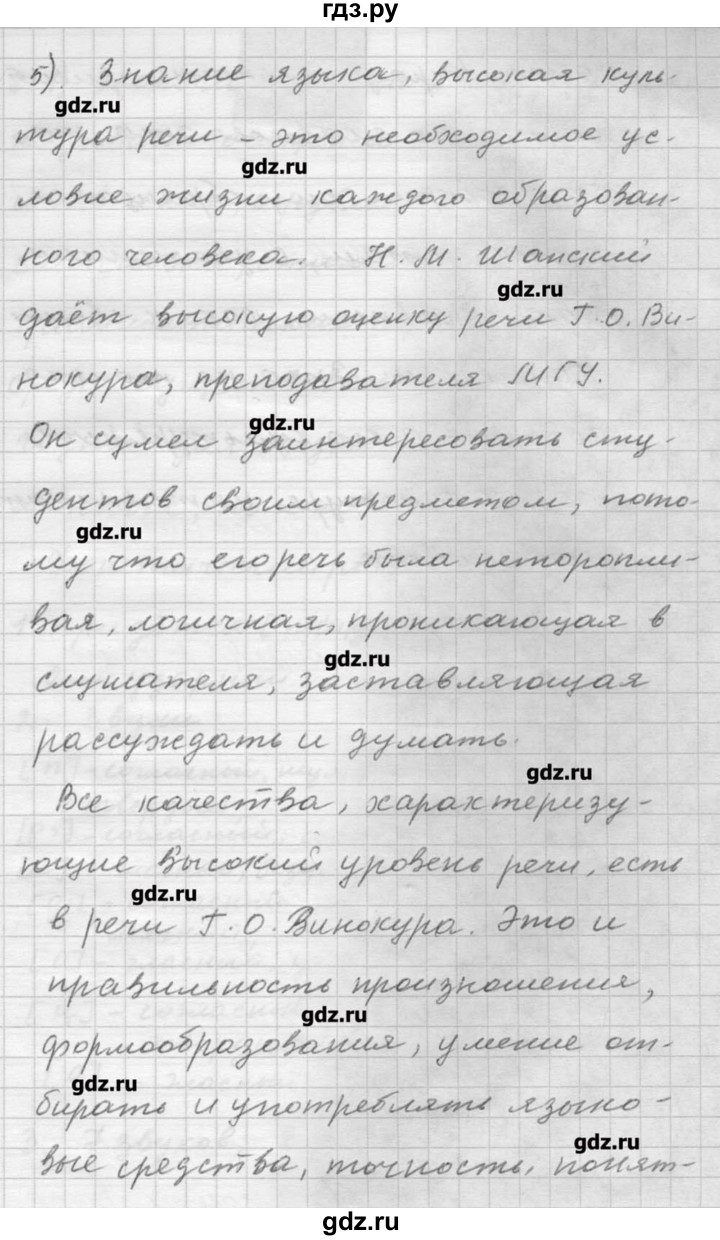 гдз.ру
5). Знание языка, высокая куль-
gdz.ru
тура речи – это необходимое ус-
gdz.ru
ловие жизни каждого образован-
ного человека. Н. М. Шанский
gdz.ru
даёт высокую оценку речи Г. О. Ви-
нокура, преподавателя МГУ.
gdz.ru
Он сумел заинтересовать сту-
дентов своим предметом, пото-
gdz.ru
му что его речь была неторопли-
вая, логичная, проникающая в
gdz.ru
слушателя, заставляющая
рассуждать и думать.
gdz.ru
Все качества, характеризу-
ющие высокий уровень речи, есть
gdz.ru
в речи Г. О. Винокура. Это и
правильность произношения,
gdz.ru
формообразования, умение от-
gdz.ru
бирать и употреблять языко-
gdz.ru
вые средства, точность, понят-
gdz.ru